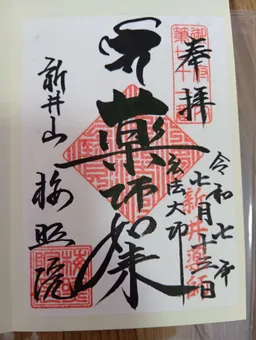 奉拝
令和七年
七月十三日
弘法大師
薬師如来
新井山
梅照院
新井薬師